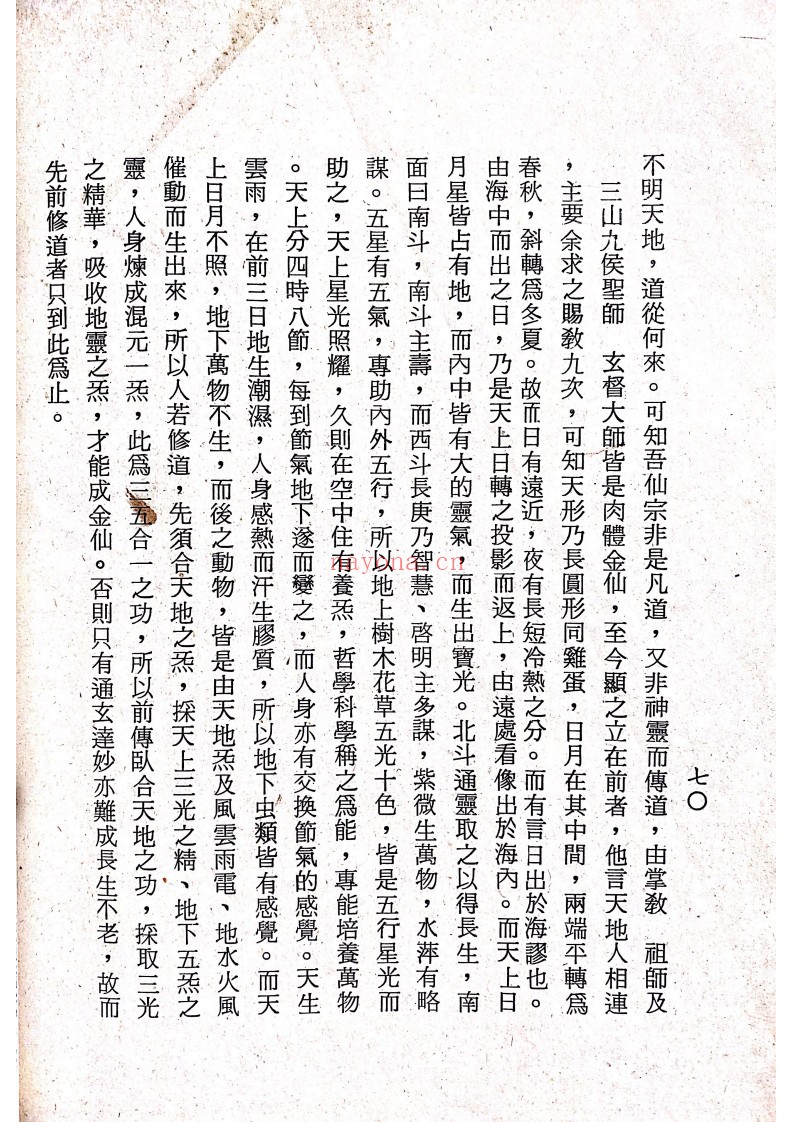 七〇
不明天地，道從何來。可知吾仙宗非是凡道，又非神靈而傳道，由掌教　祖師及
三山九侯聖師　玄督大師皆是肉體金仙，至今顯之立在前者，他言天地人相連
，主要余求之賜教九次，可知天形乃長圓形同雞蛋，日月在其中間，兩端平轉爲
春秋，斜轉爲冬夏。故而日有遠近，夜有長短冷熱之分。而有言日出於海謬也。
由海中而出之日，乃是天上日轉之投影而返上，由遠處看像出於海內。而天上日
月星皆占有地，而內中皆有大的靈氣，而生出寶光。北斗通靈取之以得長生，南
面曰南斗，南斗主壽，而西斗長庚乃智慧、啓明主多謀，紫微生萬物，水萍有略
謀。五星有五氣，專助內外五行，所以地上樹木花草五光十色，皆是五行星光而
助之，天上星光照耀，久則在空中住有養炁，哲學科學稱之爲能，專能培養萬物
。天上分四時八節，每到節氣地下遂而變之，而人身亦有交換節氣的感覺。天生
雲雨，在前三日地生潮濕，人身感熱而汗生膠質，所以地下虫類皆有感覺。而天
上日月不照，地下萬物不生，而後之動物，皆是由天地炁及風雲雨電、地水火風
催動而生出來，所以人若修道，先須合天地之炁，採天上三光之精、地下五炁之
靈，人身煉成混元一炁，此爲三五合一之功，所以前傳臥合天地之功，採取三光
之精華，吸收地靈之炁，才能成金仙。否則只有通玄達妙亦難成長生不老，故而
先前修道者只到此爲止。
nayona.cn